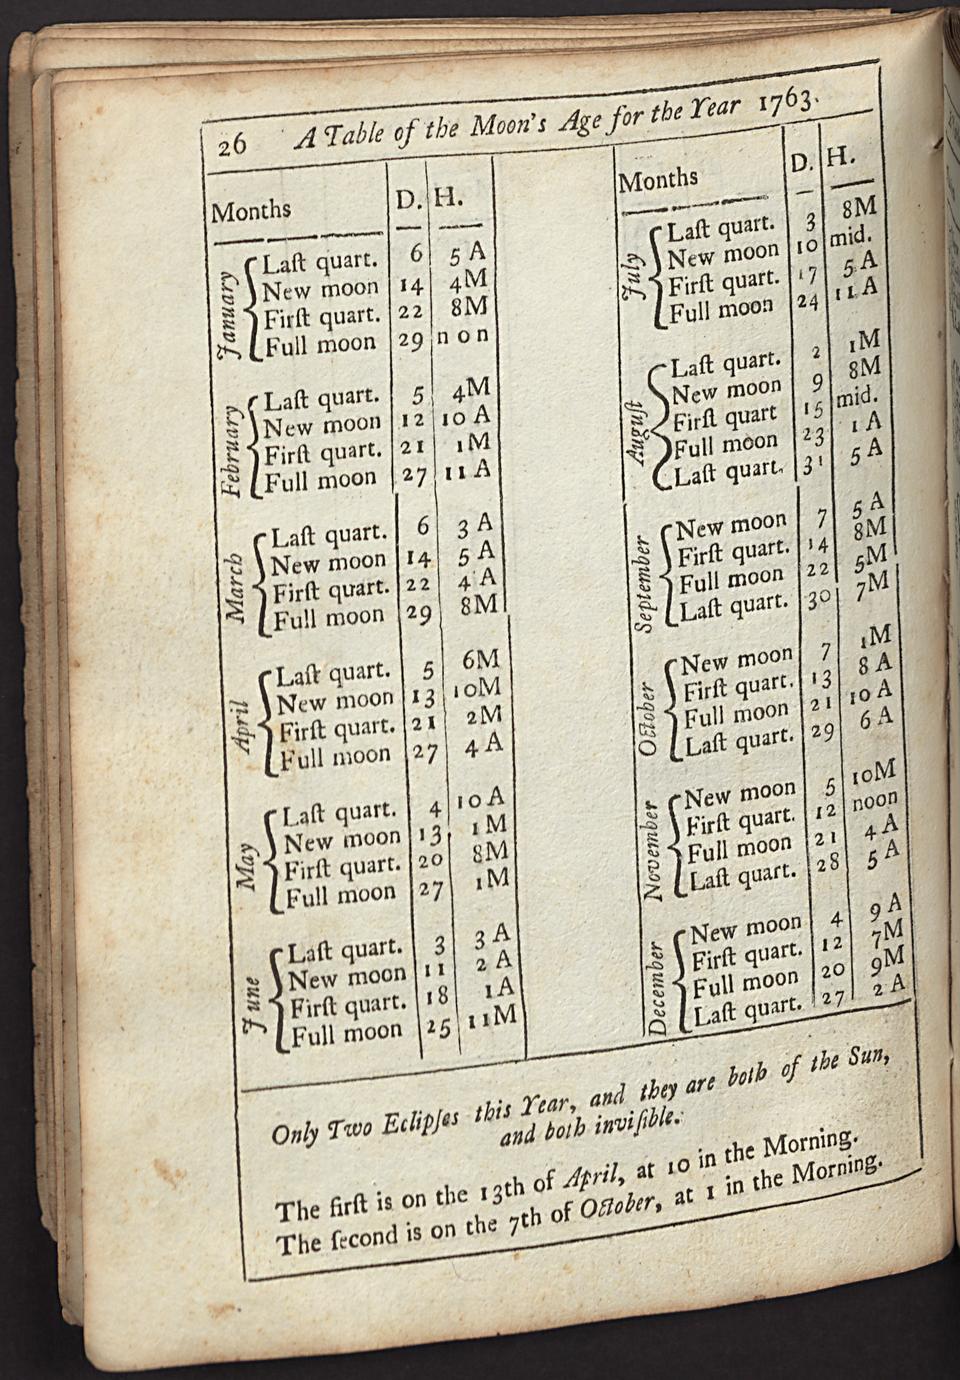 26 A Table of the Moon's Age for the Year 1763.
Months D. H.
January
Laſt quart. 6 5 A
New moon 14 4M
Firſt quart. 22 8M
Full moon 29 n o n
February
Laſt quart. 5 4M
New moon 12 10 A
Firſt quart. 21 1M
Full moon 27 11 A
March
Laſt quart. 6 3 A
New moon 14 5 A
Firſt quart. 22 4 A
Full moon 29 8M
April
Laſt quart. 5 6M
New moon 13 10M
Firſt quart. 21 2M
Full moon 27 4 A
May
Laſt quart. 4 10 A
New moon 13 1M
Firſt quart. 20 8M
Full moon 27 1M
June
Laſt quart. 3 3 A
New moon 11 2 A
Firſt quart. 18 1A
Full moon 25 11M
Months D. H.
July
Laſt quart. 3 8M
New moon 10 mid.
Firſt quart. 17 5 A
Full moon 24 11 A
Auguſt
Laſt quart. 2 1M
New moon 9 8M
Firſt quart 15 mid.
Full moon 23 1 A
Laſt quart. 31 5 A
September
New moon 7 5 A
Firſt quart. 14 8M
Full moon 22 5M
Laſt quart. 30 7M
October
New moon 7 1M
Firſt quart. 13 8 A
Full moon 21 10 A
Laſt quart. 29 6 A
November
New moon 5 10M
Firſt quart. 12 noon
Full moon 21 4 A
Laſt quart. 28 5 A
December
New moon 4 9 A
Firſt quart. 12 7M
Full moon 20 9M
Laſt quart. 27 2 A
Only Two Eclipſes this Year, and they are both of the Sun,
and both inviſible.
The firſt is on the 13th of April, at 10 in the Morning.
The ſecond is on the 7th of October, at 1 in the Morning.